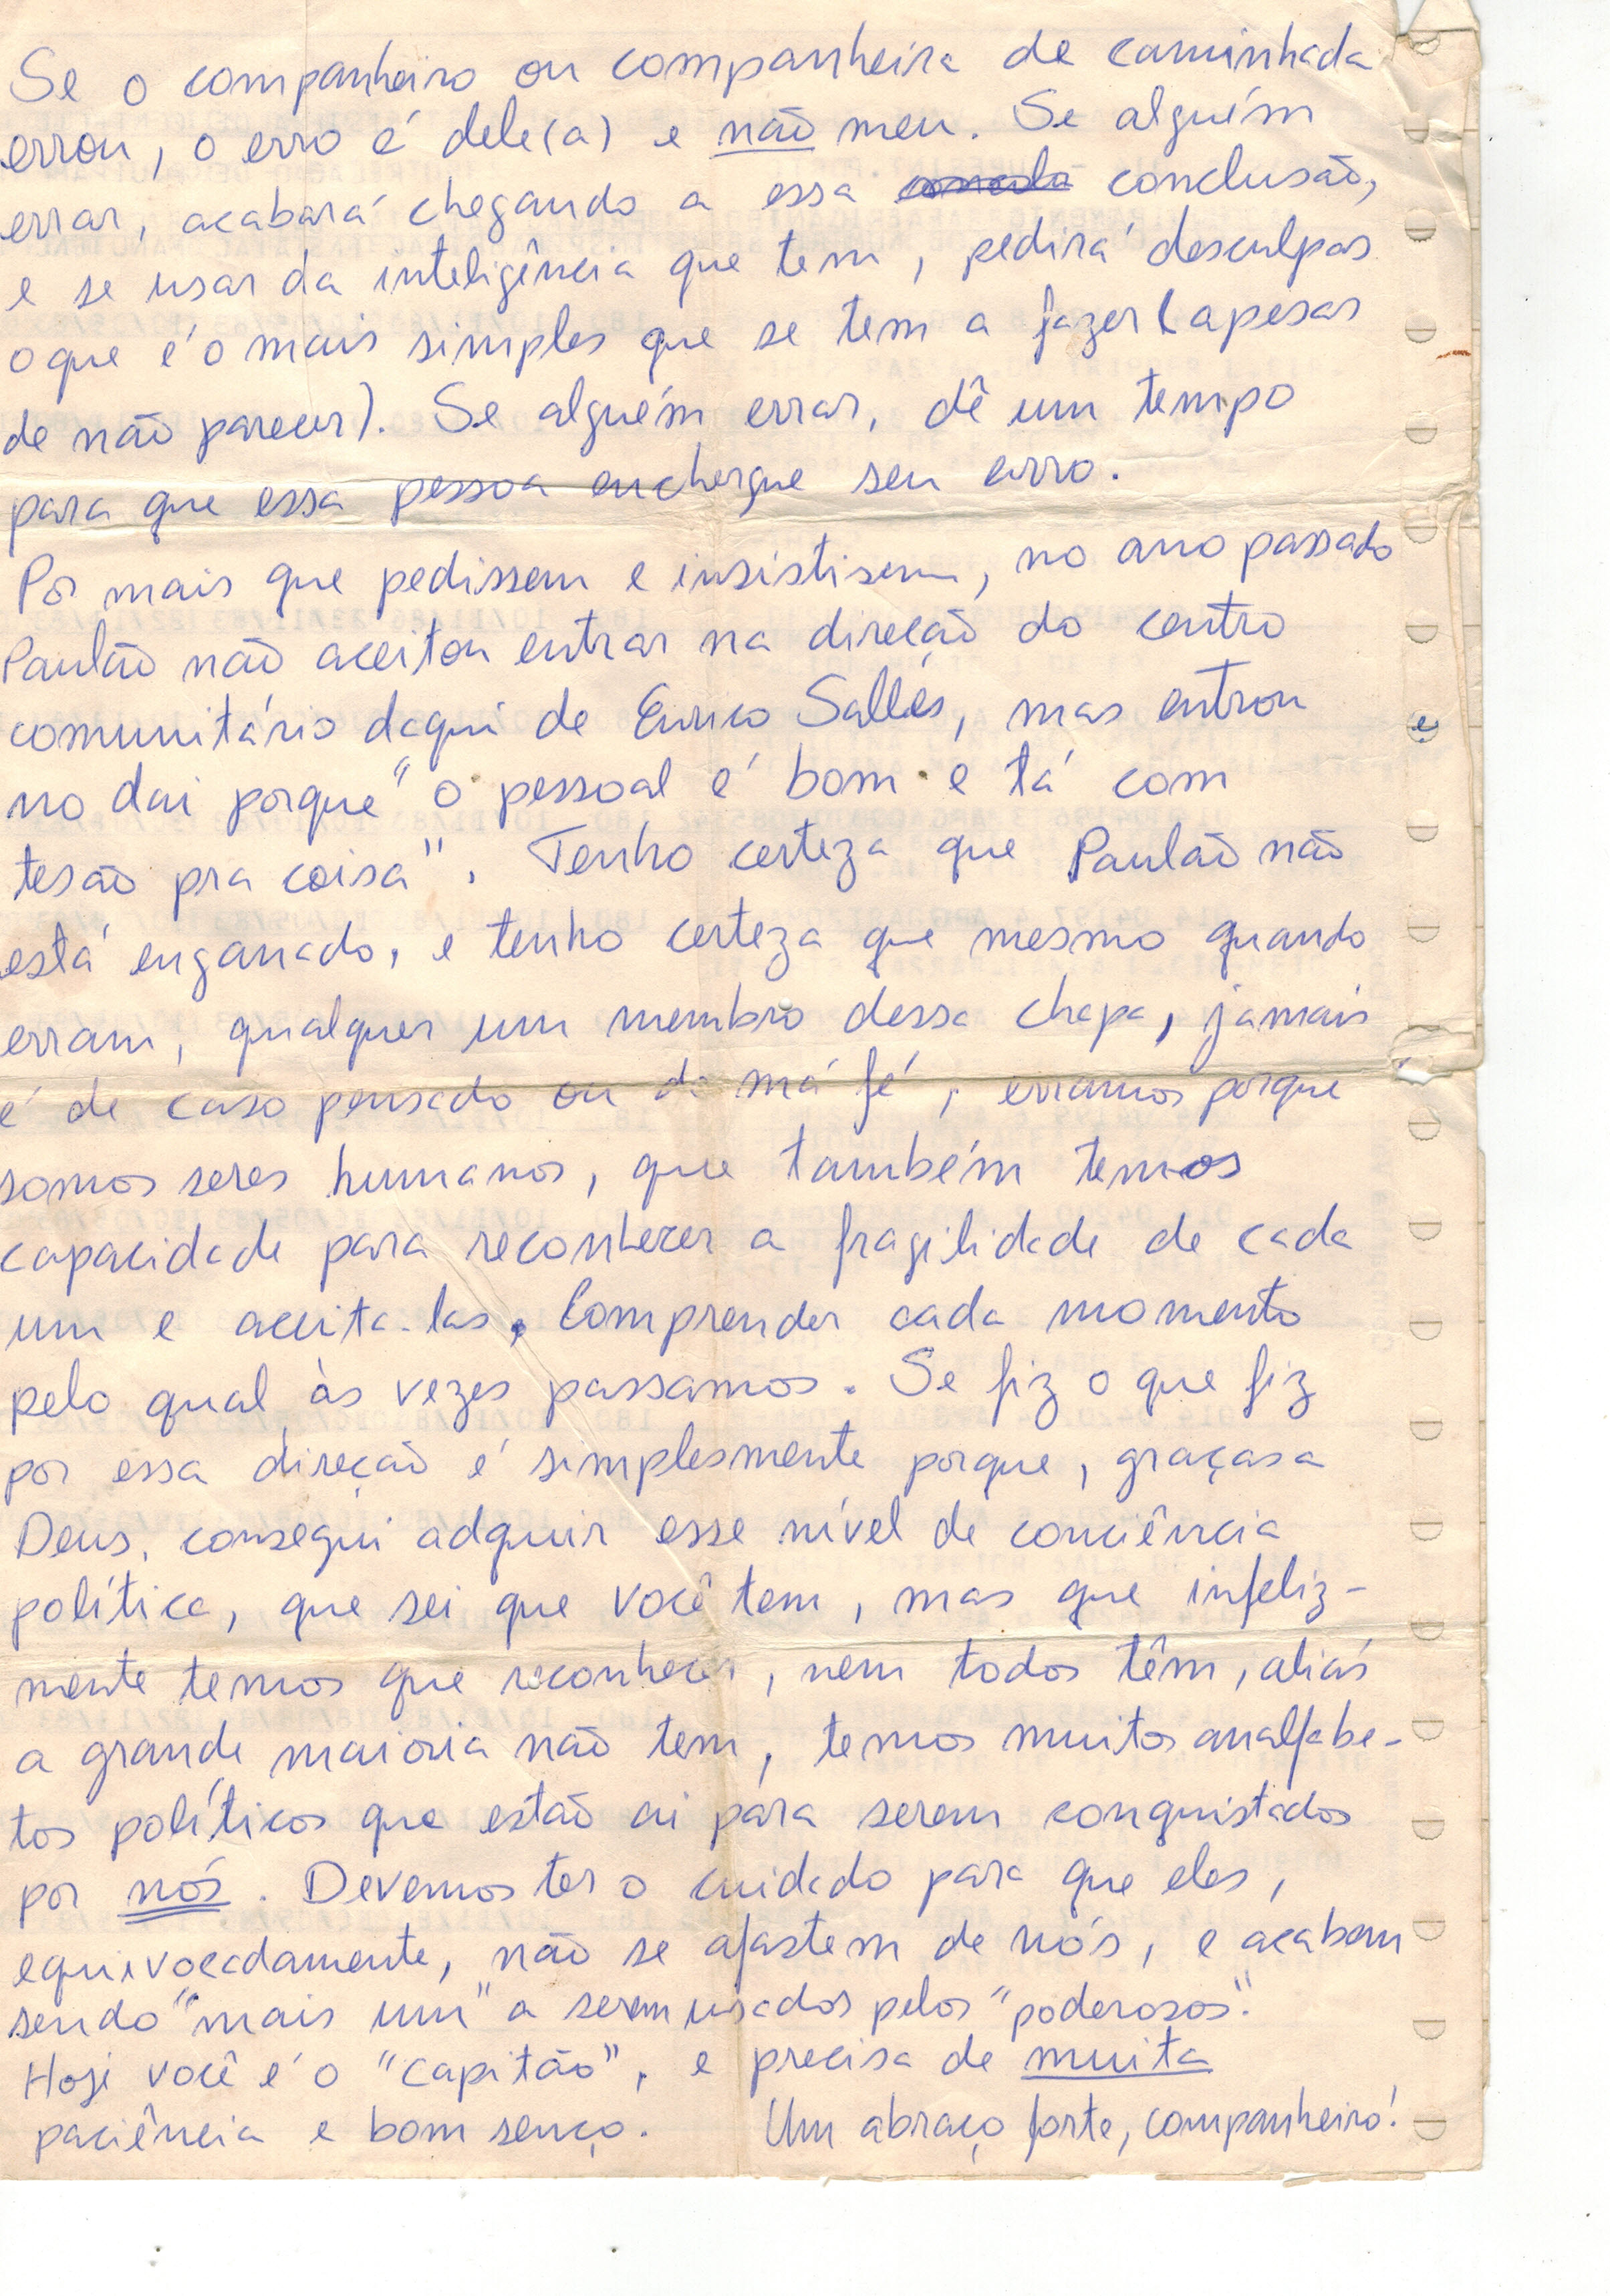 Se o companheiro ou companheira de caminhada
errou, o erro é dele(a) e não meu. Se alguém
errar, acabará chegando a essa conclusão,
e se usar da inteligência que tem, pedirá desculpas
o que é o mais simples que se tem a fazer (apesar
de não parecer). Se alguém errar, dê um tempo
para que essa pessoa enchergue seu erro.
Por mais que pedissem e insistisem, no ano passado
Paulão não aceitou entrar na direção do centro
comunitário daqui de Eurico Salles, mas entrou
no dai porque "o pessoal é bom e tá com
tesão pra coisa". Tenho certeza que Paulão não
está enganado, e tenho certeza que mesmo quando
erram, qualquer um membro dessa chapa, jamais
é de caso pensado ou de má fé, erramos porque
somos seres humanos, que também temos
capacidade para reconhecer a fragilidade de cada
um e aceita-las. Comprender cada momento
pelo qual às vezes passamos. Se fiz o que fiz
por essa direção é simplesmente porque, graças a
Deus, consegui adquirir esse nível de conciência
política, que sei que você tem, mas que infeliz-
mente temos que reconhecer, nem todos têm, aliás
a grande maioria não tem, temos muitos analfabe-
tos políticos que estão ai para serem conquistados
por nós. Devemos ter o cuidado para que eles,
equivocadamente, não se afastem de nós, e acabem
sendo "mais um" a serem usados pelos "poderosos".
Hoje você é o "capitão", e precisa de muita
paciência e bom senço. Um abraço forte, companheiro!
e